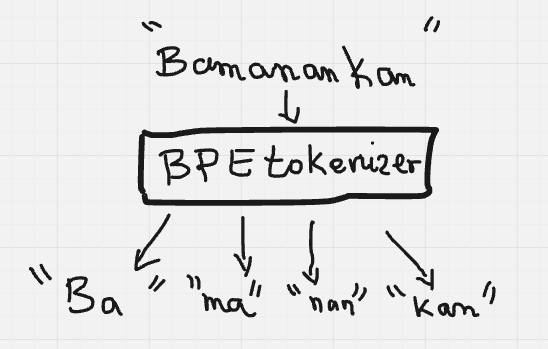 "Bamanankan"
BPE tokenizer
"Ba" "ma" "nan" "kan"